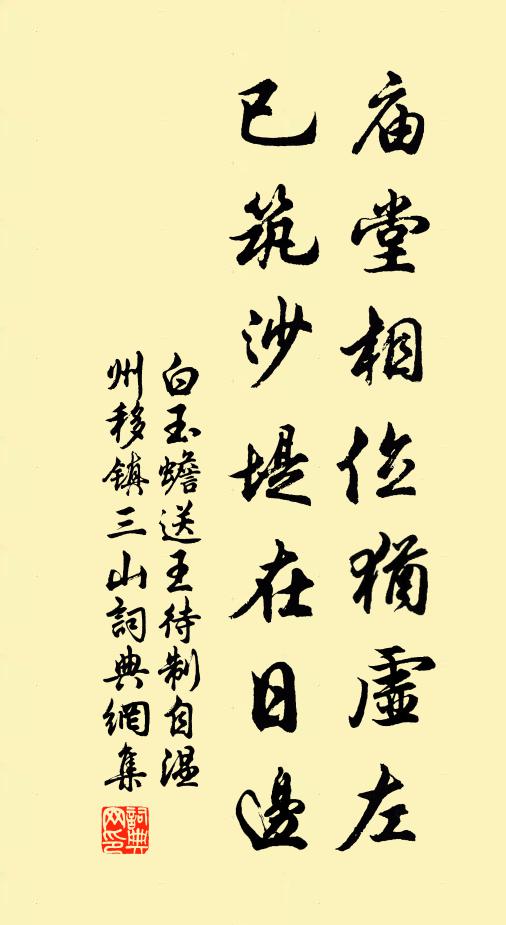 庙堂相位犹虚左
已筑沙堤在日邊
白玉蟾送王待制自温
州移镇三山詞典網集
詞典
网印